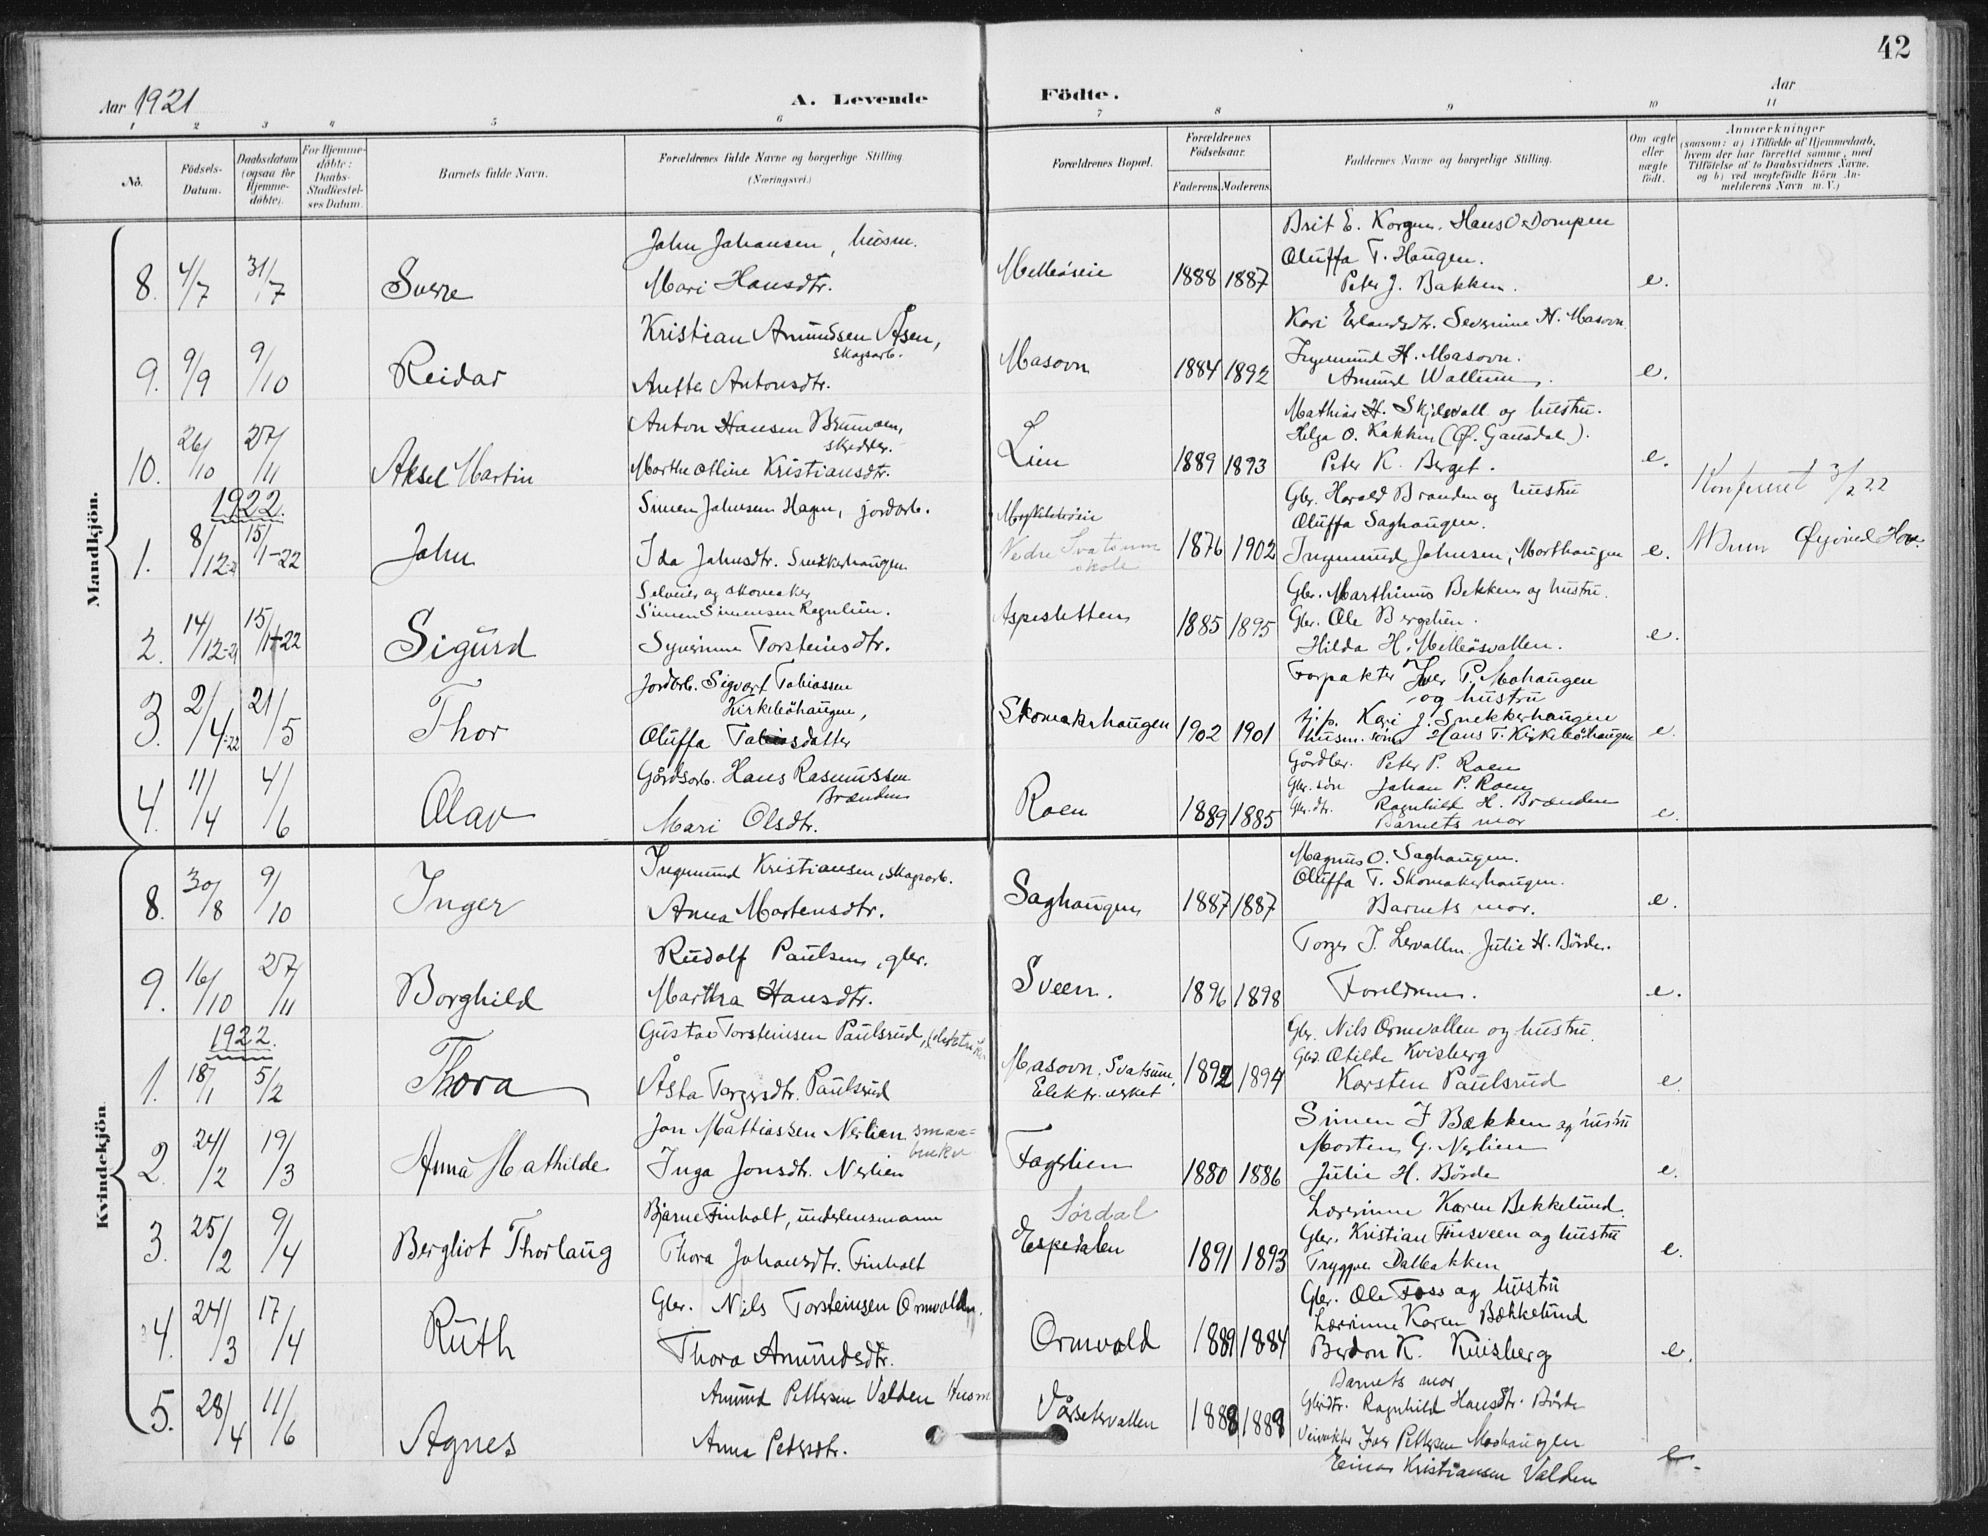 42
Aar 1921
A. Levende Födte.
Aar
1 2 3 4 5 6 7 8 9 10 11
No.
Födsels-
Datum.
Daabsdatum
(ogsaa for
Hjemme-
döbte).
For Hjemme-
döbte:
Daabs-
Stadfæstel-
ses Datum.
Barnets fulde Navn.
Forældrenes fulde Navne og borgerlige Stilling
(Næringsvei.)
Forældrenes Bopæl.
Forældrenes
Födselsaar.
Faderens. Moderens.
Faddernes Navne og borgerlige Stilling.
Om ægte
eller
uægte
födt.
Anmærkninger
(saasom: a) i Tilfælde af Hjemmedaab,
hvem der har forrettet samme, med
Tilföielse af to Daabsvidners Navne.
og b) ved uægtefödte Börn An-
melderens Navn m.V.)
Mandkjön.
8. 4/7 31/7 Sverre
John Johansen, husm.
Mari Hansdtr.
1888 1887
Brit E. Korgen. Hans O. Dompen
Oluffa T. Haugen.
Peter J. Bakken.
e.
9. 9/9 9/10 Reidar
Kristian Amundsen Åsen,
skogsarb.
Anette Antonsdtr.
Masovn 1884 1892
Kari Erlandsdtr. Severine H. Masovn
Ingemund H. Masovn.
Amund Wallum.
e.
10. 26/10 27/11 Aksel Martin
Anton Hansen
skredder.
Marthe Otline Kristiansdtr.
Lien 1889 1893
Mathias H. og hustru.
Helga O. (Ø. Gausdal).
Peter K. Berget.
e.
Konferert 3/2 22
1922.
1. 8/12-21 15/1-22 John
Simen Johnsen Hagen, jordarb.
Ida Johnsdtr. Snekkerhaugen
Nedre Svatsum
skole
1876 1902
Gbr. Harald Branden og hustru
Oluffa Saghaugen.
Ingemund Johnsen, Morthaugen
e.
Øyvind
2. 14/12-21 15/1-22 Sigurd
Selveier og skomaker
Simen Simensen Rognlien.
Syverinne Torsteinsdtr.
Aspesletten 1885 1895
Gbr. Marthinus Bekken og hustru.
Gbr. Ole Berglien.
Hilda H.
e.
3. 2/4-22 21/5 Thor
Jordarb. Sigvart Tobiassen
Kirkeböhaugen,
Oluffa Tobiasdatter
Skomakerhaugen 1902 1901
Forpakter Iver P. Mohaugen
og hustru
tj.p. Kari J. Snekkerhaugen
husm. sön Hans T. Kirkeböhaugen
e.
4. 11/4 4/6 Olav
Gårdsarb. Hans Rasmussen
Brænden
Mari Olsdtr.
Roen 1889 1885
Gårdbr. Peter P. Roen
Gbr. sön Johan P. Roen
Gbr. dtr. Ragnhild H. Brænden
Barnets mor
e.
Kvindekjön.
8. 30/8 9/10 Inger
Ingemund Kristiansen, skogsarb.
Anna Mortensdtr.
Saghaugen 1887 1887
Magnus O. Saghaugen.
Oluffa T. Skomakerhaugen.
Barnets mor.
e.
9. 16/10 27/11 Borghild
Rudolf Paulsen, gbr.
Martha Hansdtr.
Sveen. 1896 1898
Torger J. Julie H. Börde.
Foreldrene.
e.
1922.
1. 18/1 5/2 Thora
Gustav Torsteinsen Paulsrud,
Åsta Torgersdtr. Paulsrud
Masovn, Svatsum,
Elektr. verket
1892 1894
Gbr. Nils Ormvollen og hustru.
Gbr. Otilde Kvisberg
Karsten Paulsrud
e.
2. 24/2 19/3 Anna Mathilde
Jon Mattiassen Nerlien smaa-
bruker
Inga Jonsdtr. Nerlien
Fagerlien 1880 1886
Simen J Bækken og hustru
Morten G. Nerlien
Julie H. Börde
e.
3. 25/2 9/4 Bergliot Thorlaug
Bjarne Finholt, underlensmann
Thora Johansdtr. Finholt
Sördal
Espedalen 1891 1893
Lærerinne Karen Bekkelund.
Gbr. Kristian Finsveen og hustru
Tryggve Dalbakken
e.
4. 24/3 17/4 Ruth
Gbr. Nils Torsteinsen Ormvolden.
Thora Amundsdtr.
Ormvold 1889 1884
Gbr. Ole Foss og hustru
Lærerinne Karen Bækkelund
Berdon K. Kvisberg
Barnets mor
e.
5. 28/4 11/6 Agnes
Amund Pettersen Valden Husm
Anna Pedersdtr.
Vårsetervollen 1888 1888
Gbrdtr. Ragnhild Hansdtr. Börde
Iver Pettersen Moshaugen
Einar Kristiansen Valden
e.